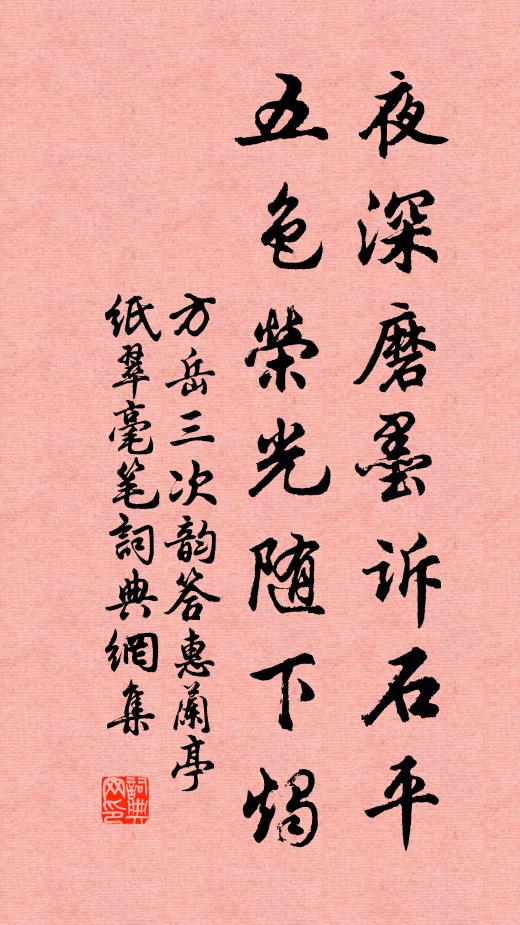 夜深磨墨訴石平
五色榮光随下燭
方岳三次韵答惠蘭亭
紙翠毫笔詞典網集
詞典
网印